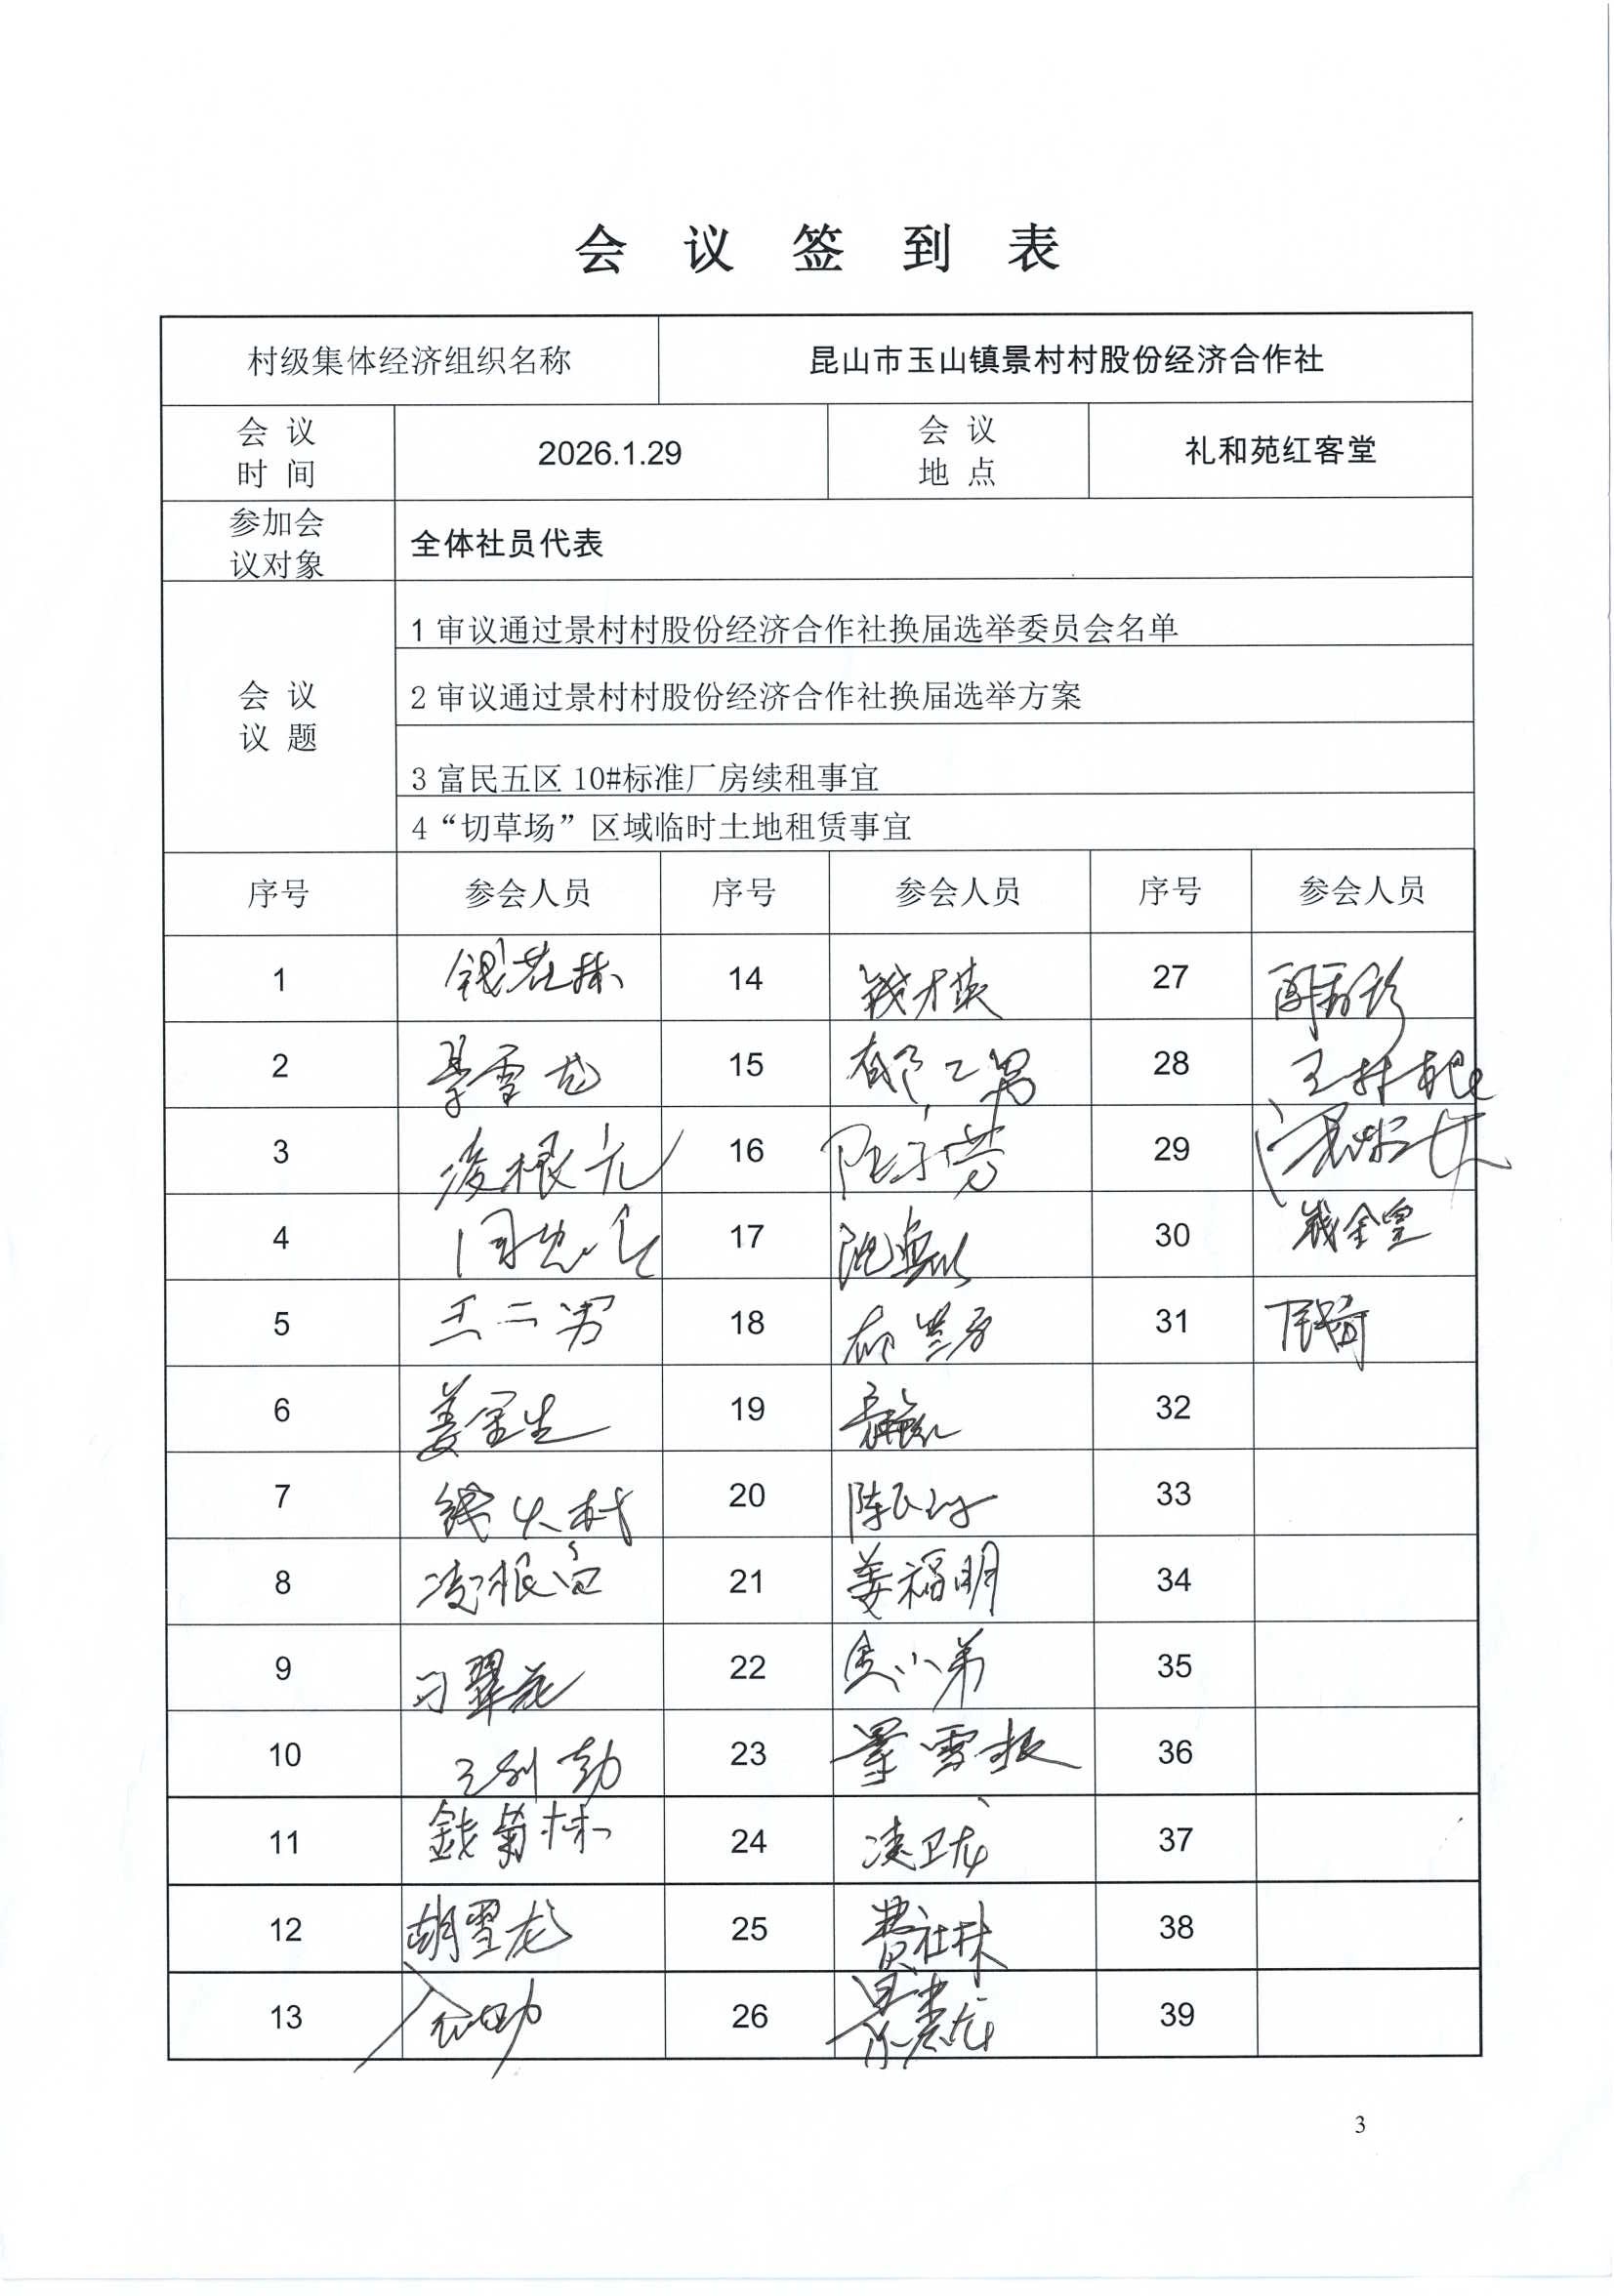 会 议 签 到 表
村级集体经济组织名称 昆山市玉山镇景村村股份经济合作社
会 议 时 间 2026.1.29 会 议 地 点 礼和苑红客堂
参加会议对象 全体社员代表
会 议 议 题
1 审议通过景村村股份经济合作社换届选举委员会名单
2 审议通过景村村股份经济合作社换届选举方案
3 富民五区 10#标准厂房续租事宜
4 “切草场” 区域临时土地租赁事宜
序号 参会人员 序号 参会人员 序号 参会人员
1 14 钱才英 27
2 景雪龙 15 郁工男 28 王林根
3 凌根元 16 29
4 17 30 钱金宝
5 王二男 18 31
6 姜金生 19 32
7 20 33
8 凌根宝 21 姜福明 34
9 刁翠花 22 金小弟 35
10 23 景雪根 36
11 錢菊林 24 凌卫龙 37
12 胡雪龙 25 费社林 38
13 26 39
3